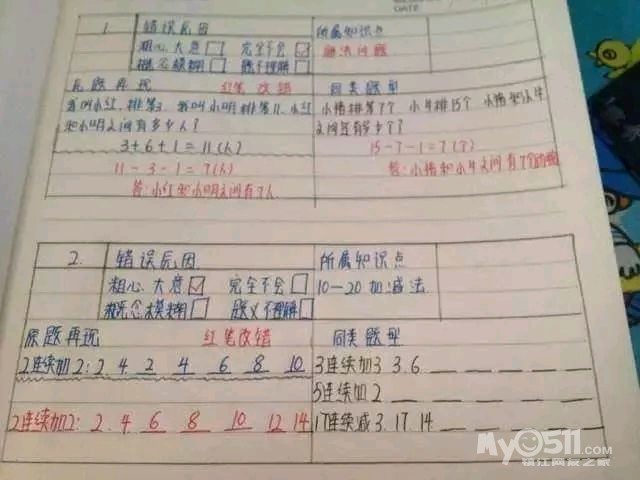 DATE
1 错误原因 所属知识点
粗心大意 完全不会 排法问题
概念模糊 题不理解
原题再现 红笔改错 同类题型
我叫小红,排第3,我叫小明排第11,小红 小猪排第7个 小牛排15个 小猪和小牛
和小明之间有多少人? 之间还有多少个?
3+6+1=11(人) 15-7-1=7(个)
11-3-1=7(人) 答:小猪和小牛之间有7个动物
答:小红和小明之间有7人
2. 错误原因 所属知识点
粗心大意 完全不会 10—20加减法
概念模糊 题义不理解
原题再现 红笔改错 同类题型
2连续加2: 2 4 2 4 6 8 10 3连续加3 3.6
5连续加2
2连续加2: 2.4 6 8 10 12 14 17连续减3.17.14
My0511.com
镇江网友之家